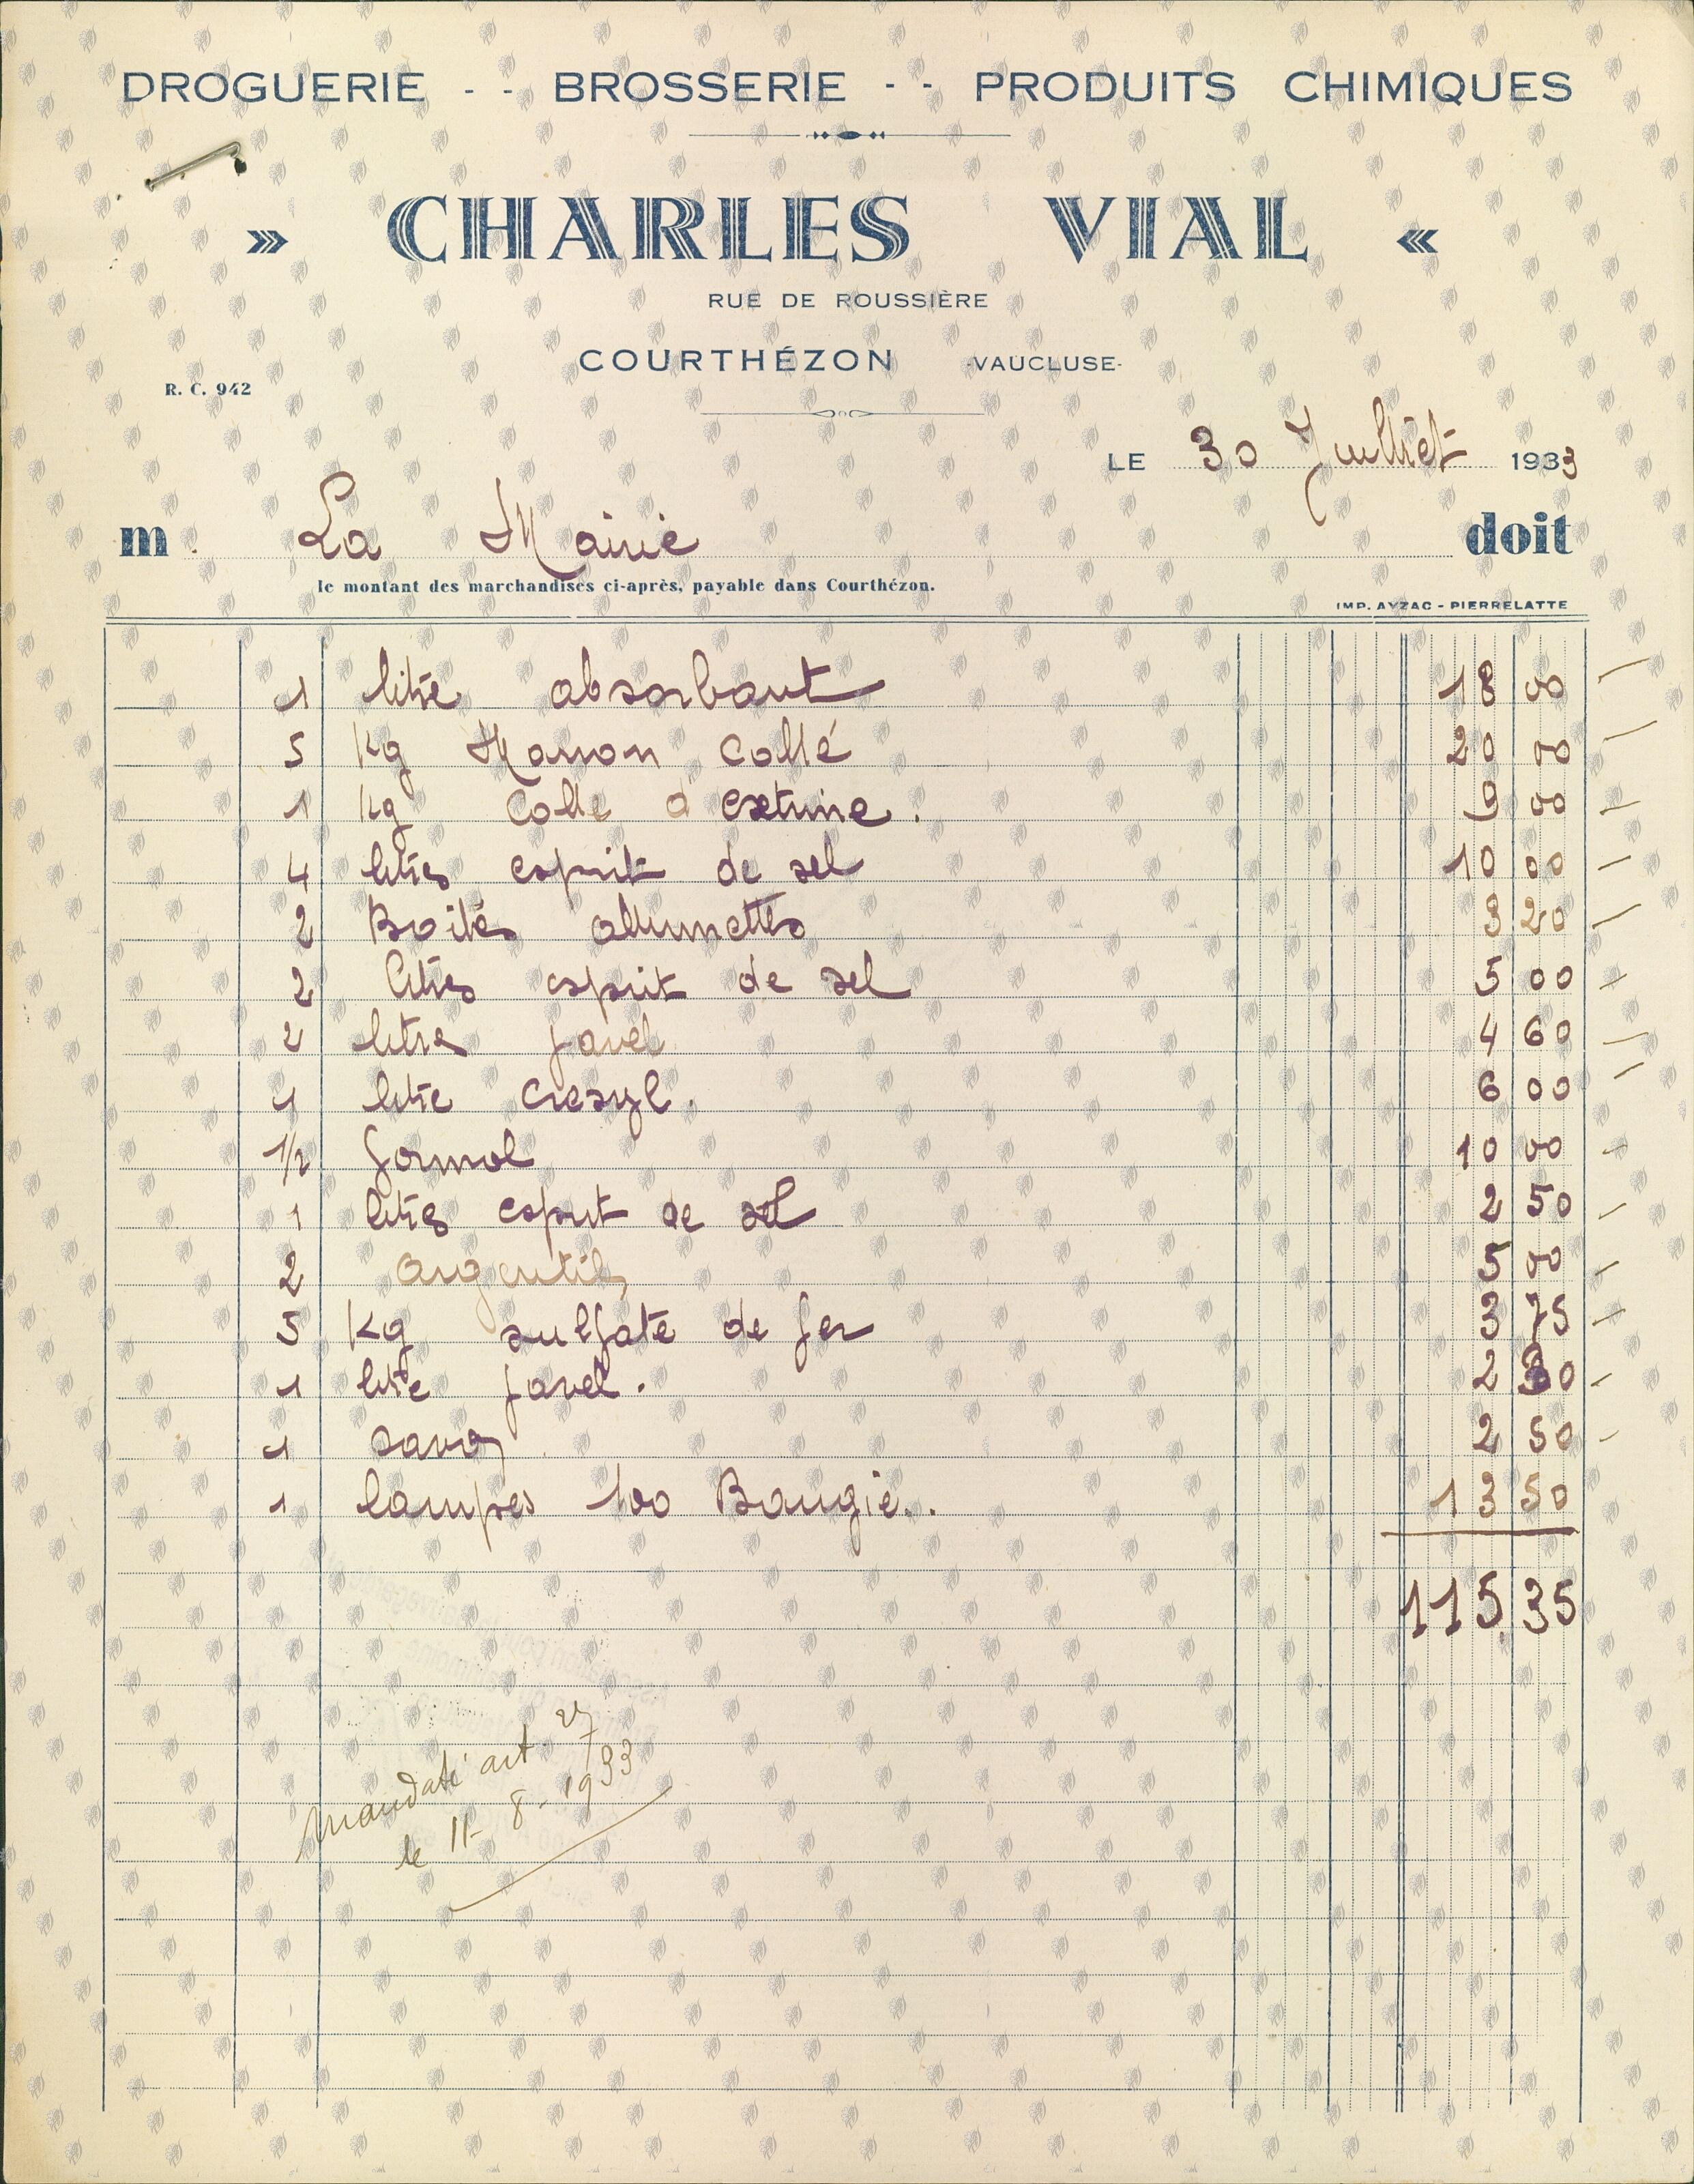 DROGUERIE - - BROSSERIE - - PRODUITS CHIMIQUES
» CHARLES VIAL «
RUE DE ROUSSIÈRE
COURTHÉZON -VAUCLUSE-
R. C. 942
LE 30 Juillet 1933
m La Mairie doit
le montant des marchandises ci-après, payable dans Courthézon.
IMP. AYZAC - PIERRELATTE
1 litre absorbant 18 00
5 Kg 20 00
1 Kg Colle 9 00
4 litres esprit de sel 10 00
2 Boites allumettes 3 20
2 litres esprit de sel 5 00
2 litre Javel 4 60
1 litre Cresyl. 6 00
1/2 formol 10 00
1 litres esprit de sel 2 50
2 argentil 5 00
5 Kg sulfate de fer 3 75
1 litre Javel. 2 30
1 savon 2 50
1 lampes 100 Bougie.. 13 50
115,35
Mandaté art. 27
le 11- 8- 1933